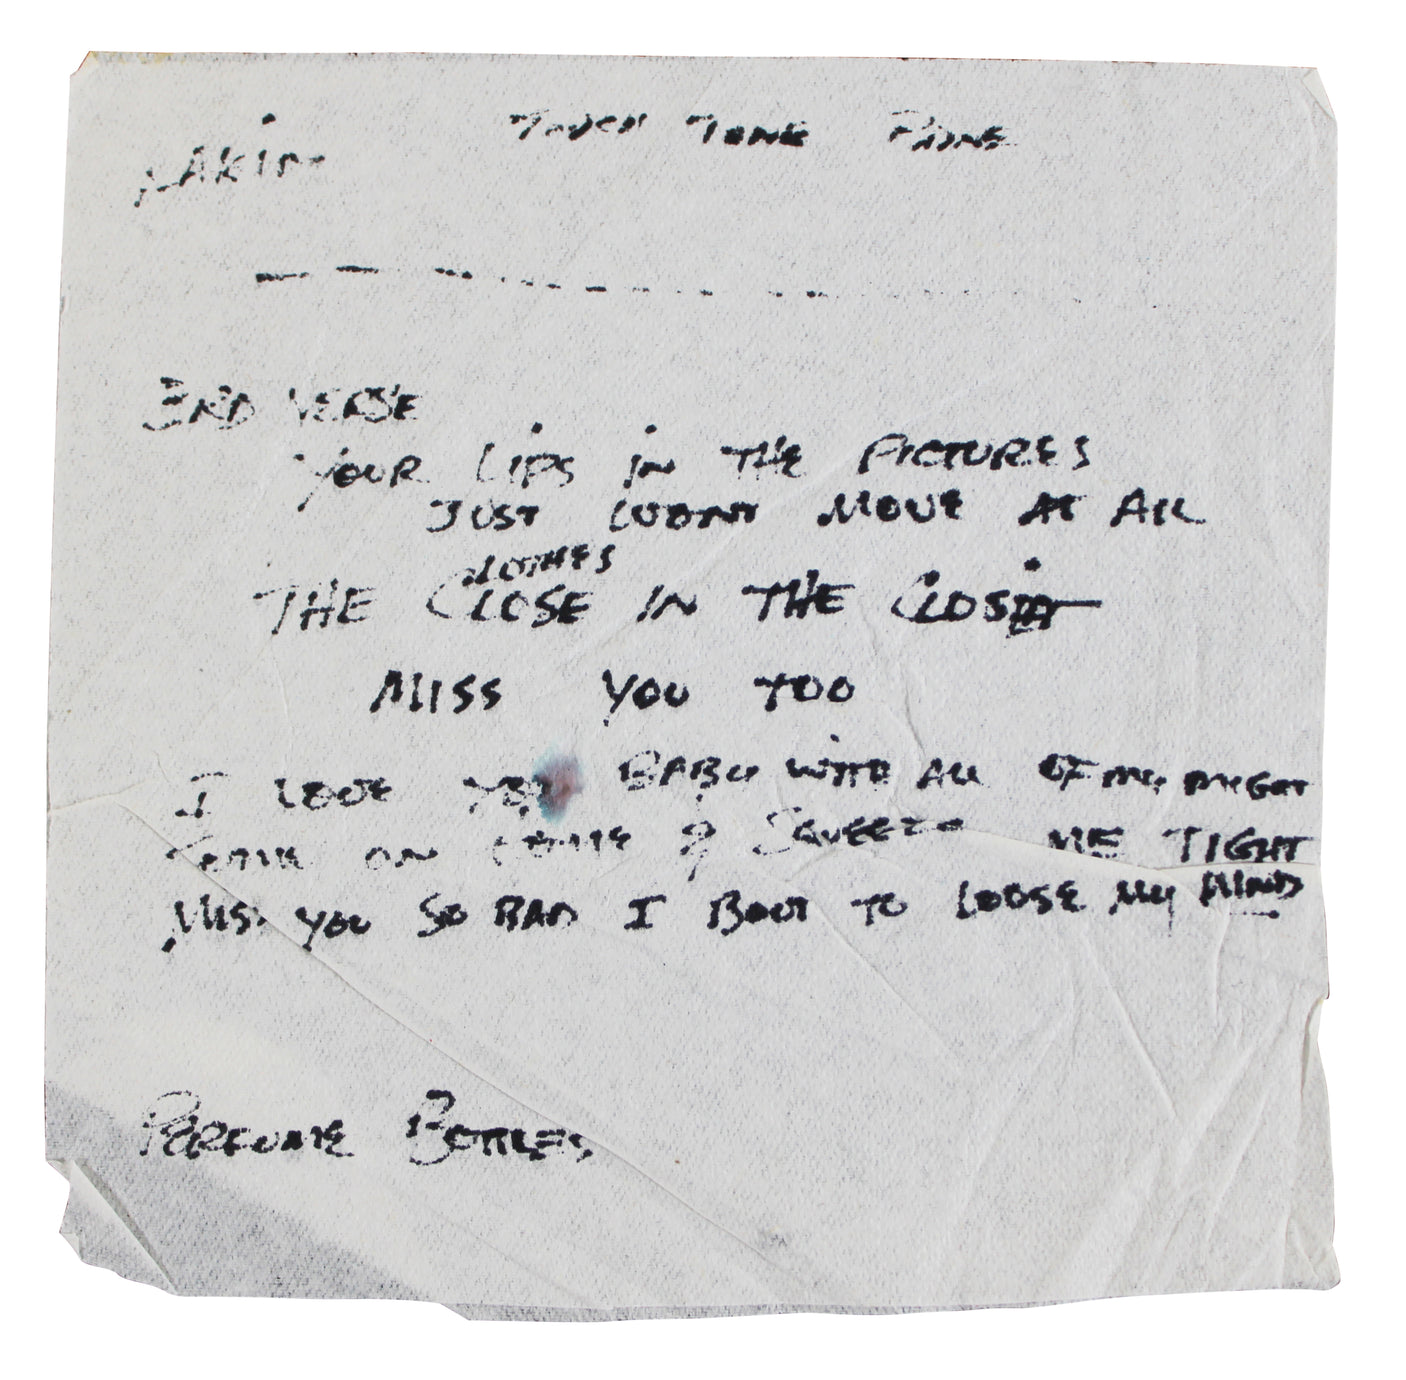 TOUCH TONE PHONE
RAKIM
3RD VERSE
YOUR LIPS IN THE PICTURES
JUST WONT MOVE AT ALL
CLOTHES
THE CLOSE IN THE CLOSIT
MISS YOU TOO
I LOVE YOU BABY WITH ALL OF MY MIGHT
COME ON HOME & SQUEEZE ME TIGHT
MISS YOU SO BAD I BOUT TO LOOSE MY MIND
PERFUME BOTTLES